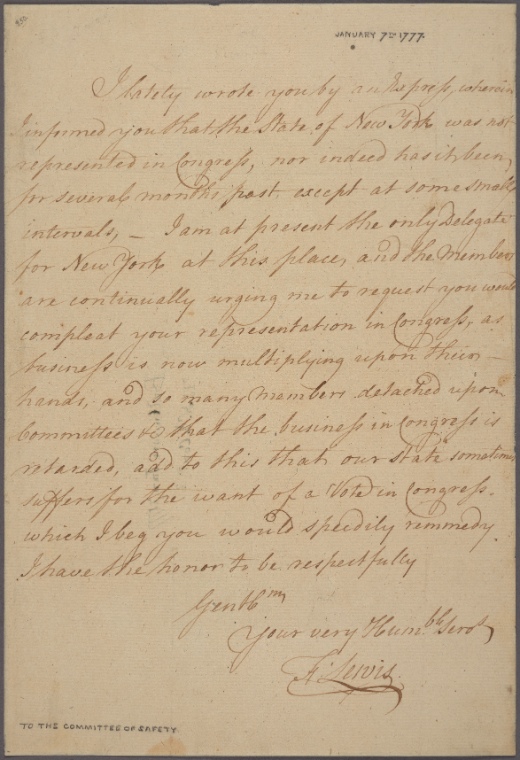 JANUARY 7TH 1777.
I lately wrote you by an Express, wherein
I informed you that the State of New York was not
represented in Congress, nor indeed has it been,
for several months past except at some small
intervals, – I am at present the only Delegate
for New York at this place, and the Members
are continually urging me to request you would
compleat your representation in Congress, as
business is now multiplying upon their –
hands, and so many members detached upon
Committees &c that the business in Congress is
retarded, add to this that our State sometimes
suffers for the want of a Vote in Congress.
which I beg you would speedily remmedy.
I have the honor to be respectfully
Gentlmn
Your very Humble Servt
Fs Lewis
TO THE COMMITTEE OF SAFETY.